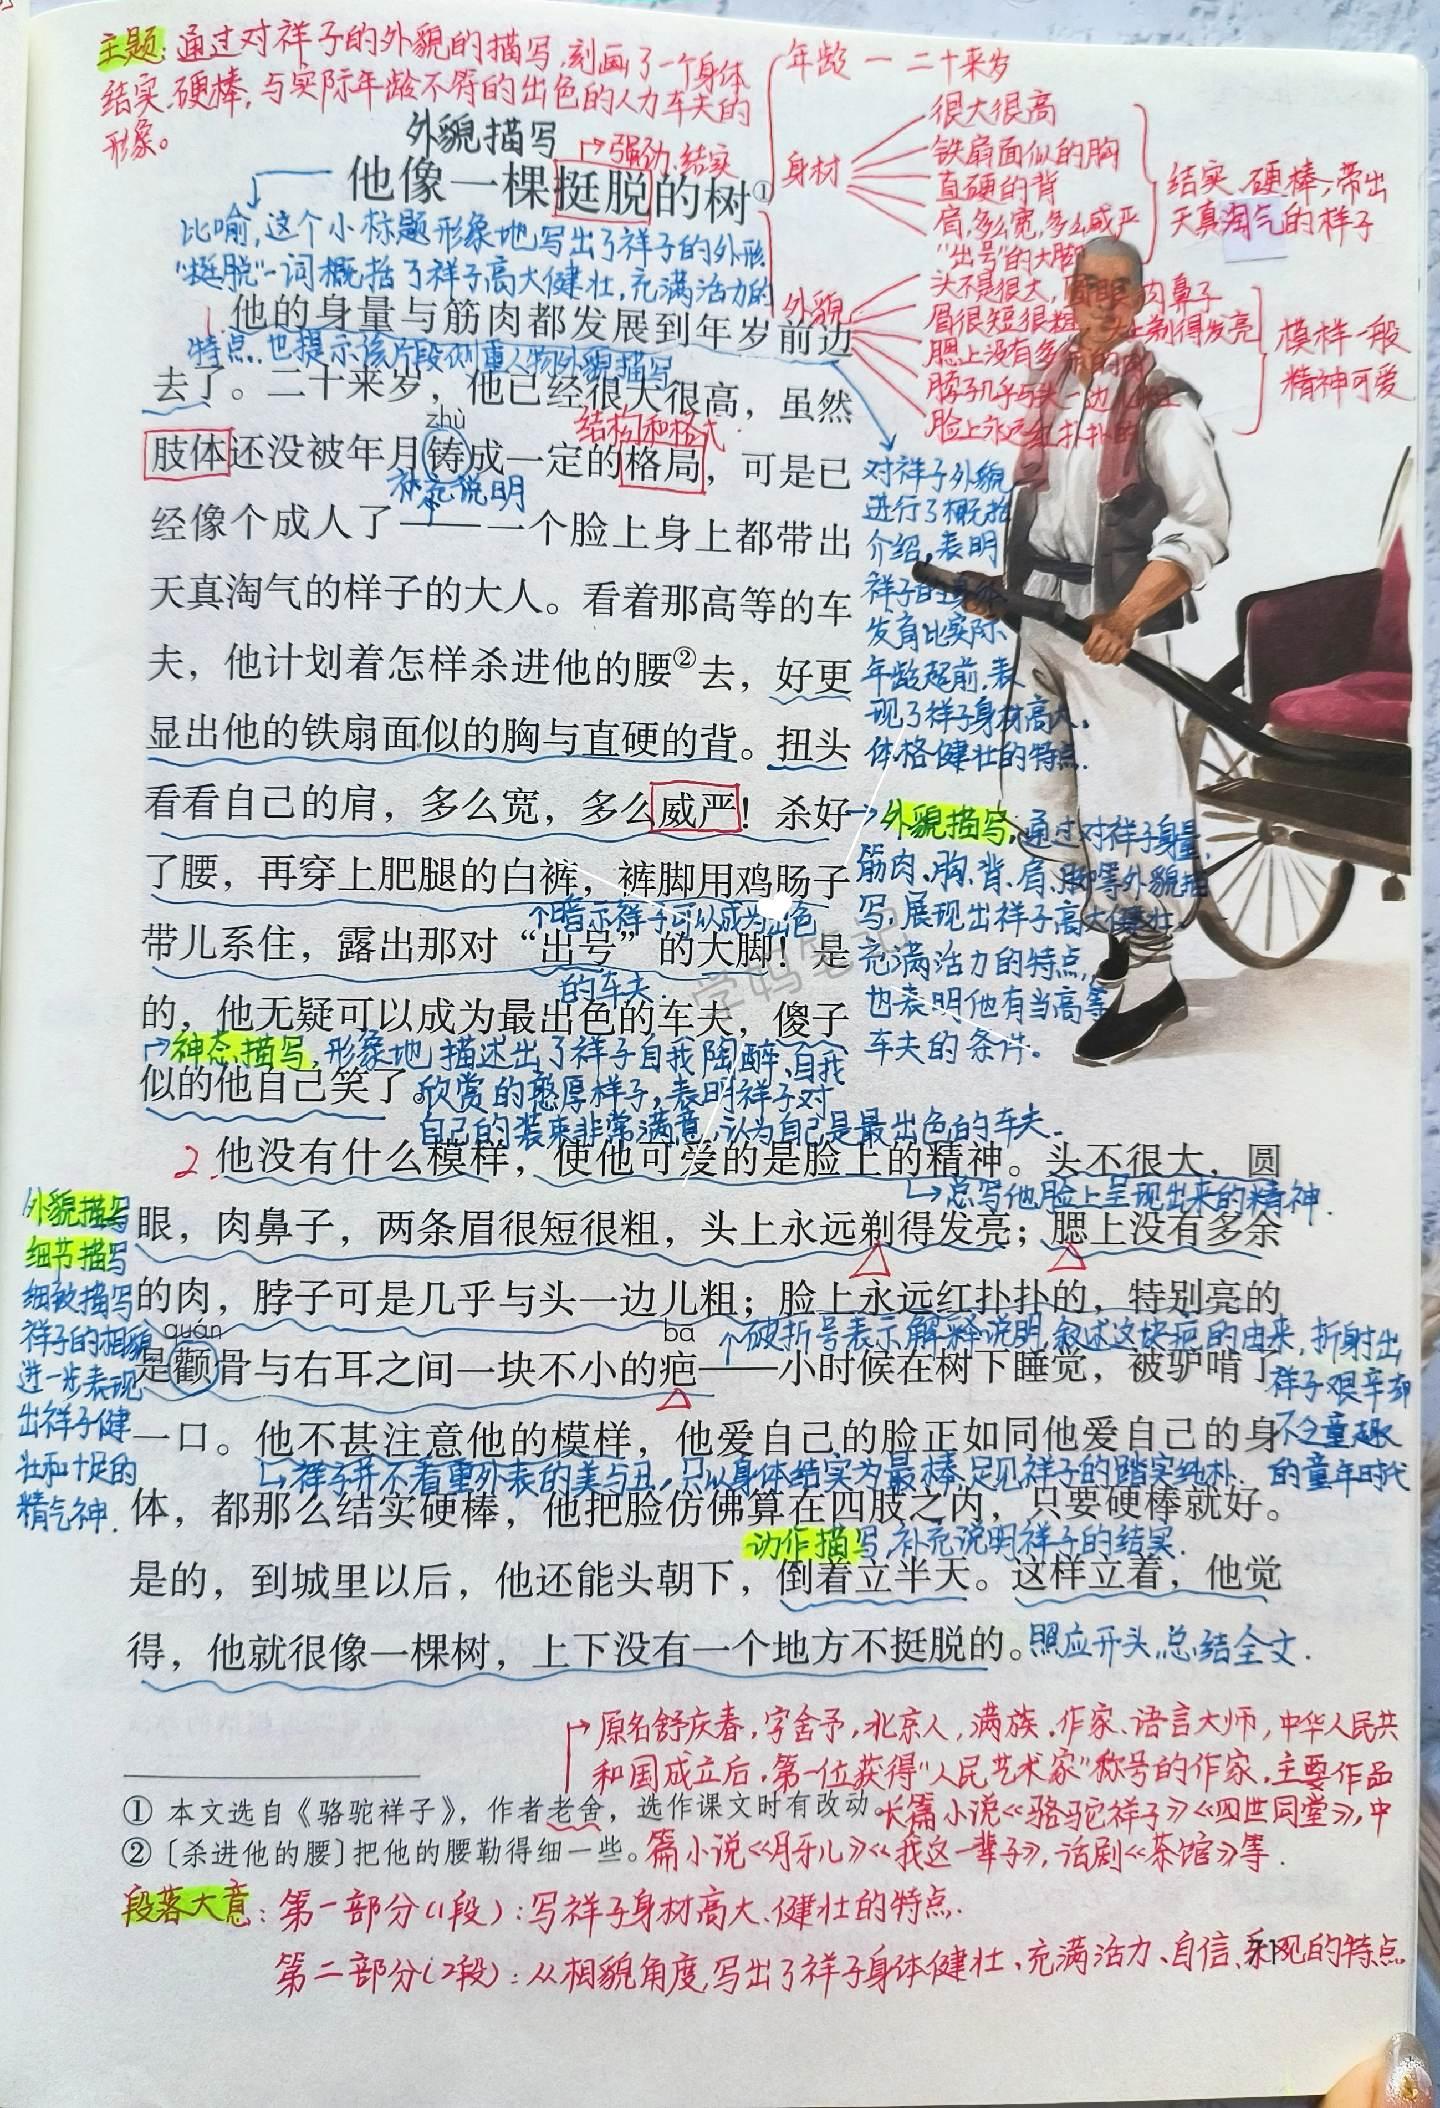 主题：通过对祥子的外貌的描写，刻画了一个身体
结实、硬棒，与实际年龄不符的出色的人力车夫的
形象。
年龄 — 二十来岁
身材
很大很高
铁扇面似的胸
直硬的背
肩，多么宽，多么威严
“出号”的大脚
结实、硬棒，带出
天真淘气的样子
外貌
头不是很大，圆眼，肉鼻子
眉很短很粗，头上剃得发亮
腮上没有多余的肉
脖子几乎与头一边儿粗
脸上永远红扑扑的
模样一般
精神可爱
外貌描写
强劲、结实
他像一棵挺脱的树①
比喻，这个小标题形象地写出了祥子的外形。
“挺脱”一词概括了祥子高大健壮，充满活力的
特点，也提示该片段侧重人物外貌描写
1. 他的身量与筋肉都发展到年岁前边
去了。二十来岁，他已经很大很高，虽然
zhù
结构和格式.
肢体还没被年月铸成一定的格局，可是已
补充说明
经像个成人了——一个脸上身上都带出
天真淘气的样子的大人。看着那高等的车
夫，他计划着怎样杀进他的腰②去，好更
显出他的铁扇面似的胸与直硬的背。扭头
看看自己的肩，多么宽，多么威严！杀好
了腰，再穿上肥腿的白裤，裤脚用鸡肠子
暗示祥子可以成为出色
带儿系住，露出那对“出号”的大脚！是
的车夫.
的，他无疑可以成为最出色的车夫，傻子
神态描写，形象地描述出了祥子自我陶醉、自我
似的他自己笑了。
欣赏的憨厚样子，表明祥子对
自己的装束非常满意，认为自己是最出色的车夫.
对祥子外貌
进行了概括
介绍，表明
祥子的身体
发育比实际
年龄超前，表
现了祥子身材高大、
体格健壮的特点.
外貌描写，通过对祥子身量，
筋肉、胸、背、肩、脚等外貌描
写，展现出祥子高大健壮、
充满活力的特点，
也表明他有当高等
车夫的条件。
学妈笔记
2. 他没有什么模样，使他可爱的是脸上的精神。头不很大，圆
总写他脸上呈现出来的精神.
眼，肉鼻子，两条眉很短很粗，头上永远剃得发亮；腮上没有多余
的肉，脖子可是几乎与头一边儿粗；脸上永远红扑扑的，特别亮的
quán
bā
破折号表示解释说明，叙述这块疤的由来，折射出
祥子艰辛却
不乏童趣
的童年时代
是颧骨与右耳之间一块不小的疤——小时候在树下睡觉，被驴啃了
一口。他不甚注意他的模样，他爱自己的脸正如同他爱自己的身
祥子并不看重外表的美与丑，只以身体结实为最棒，足见祥子的踏实纯朴.
体，都那么结实硬棒，他把脸仿佛算在四肢之内，只要硬棒就好。
动作描写，补充说明祥子的结实.
是的，到城里以后，他还能头朝下，倒着立半天。这样立着，他觉
得，他就很像一棵树，上下没有一个地方不挺脱的。
照应开头，总结全文.
外貌描写
细节描写
细致描写
祥子的相貌
进一步表现
出祥子健
壮和十足的
精气神.
原名舒庆春，字舍予，北京人，满族，作家、语言大师，中华人民共
和国成立后，第一位获得“人民艺术家”称号的作家，主要作品
① 本文选自《骆驼祥子》，作者老舍，选作课文时有改动。
长篇小说《骆驼祥子》《四世同堂》，中
② ［杀进他的腰］把他的腰勒得细一些。
篇小说《月牙儿》《我这一辈子》，话剧《茶馆》等.
段落大意：第一部分（1段）：写祥子身材高大、健壮的特点.
第二部分（2段）：从相貌角度，写出了祥子身体健壮、充满活力、自信、乐观的特点
71